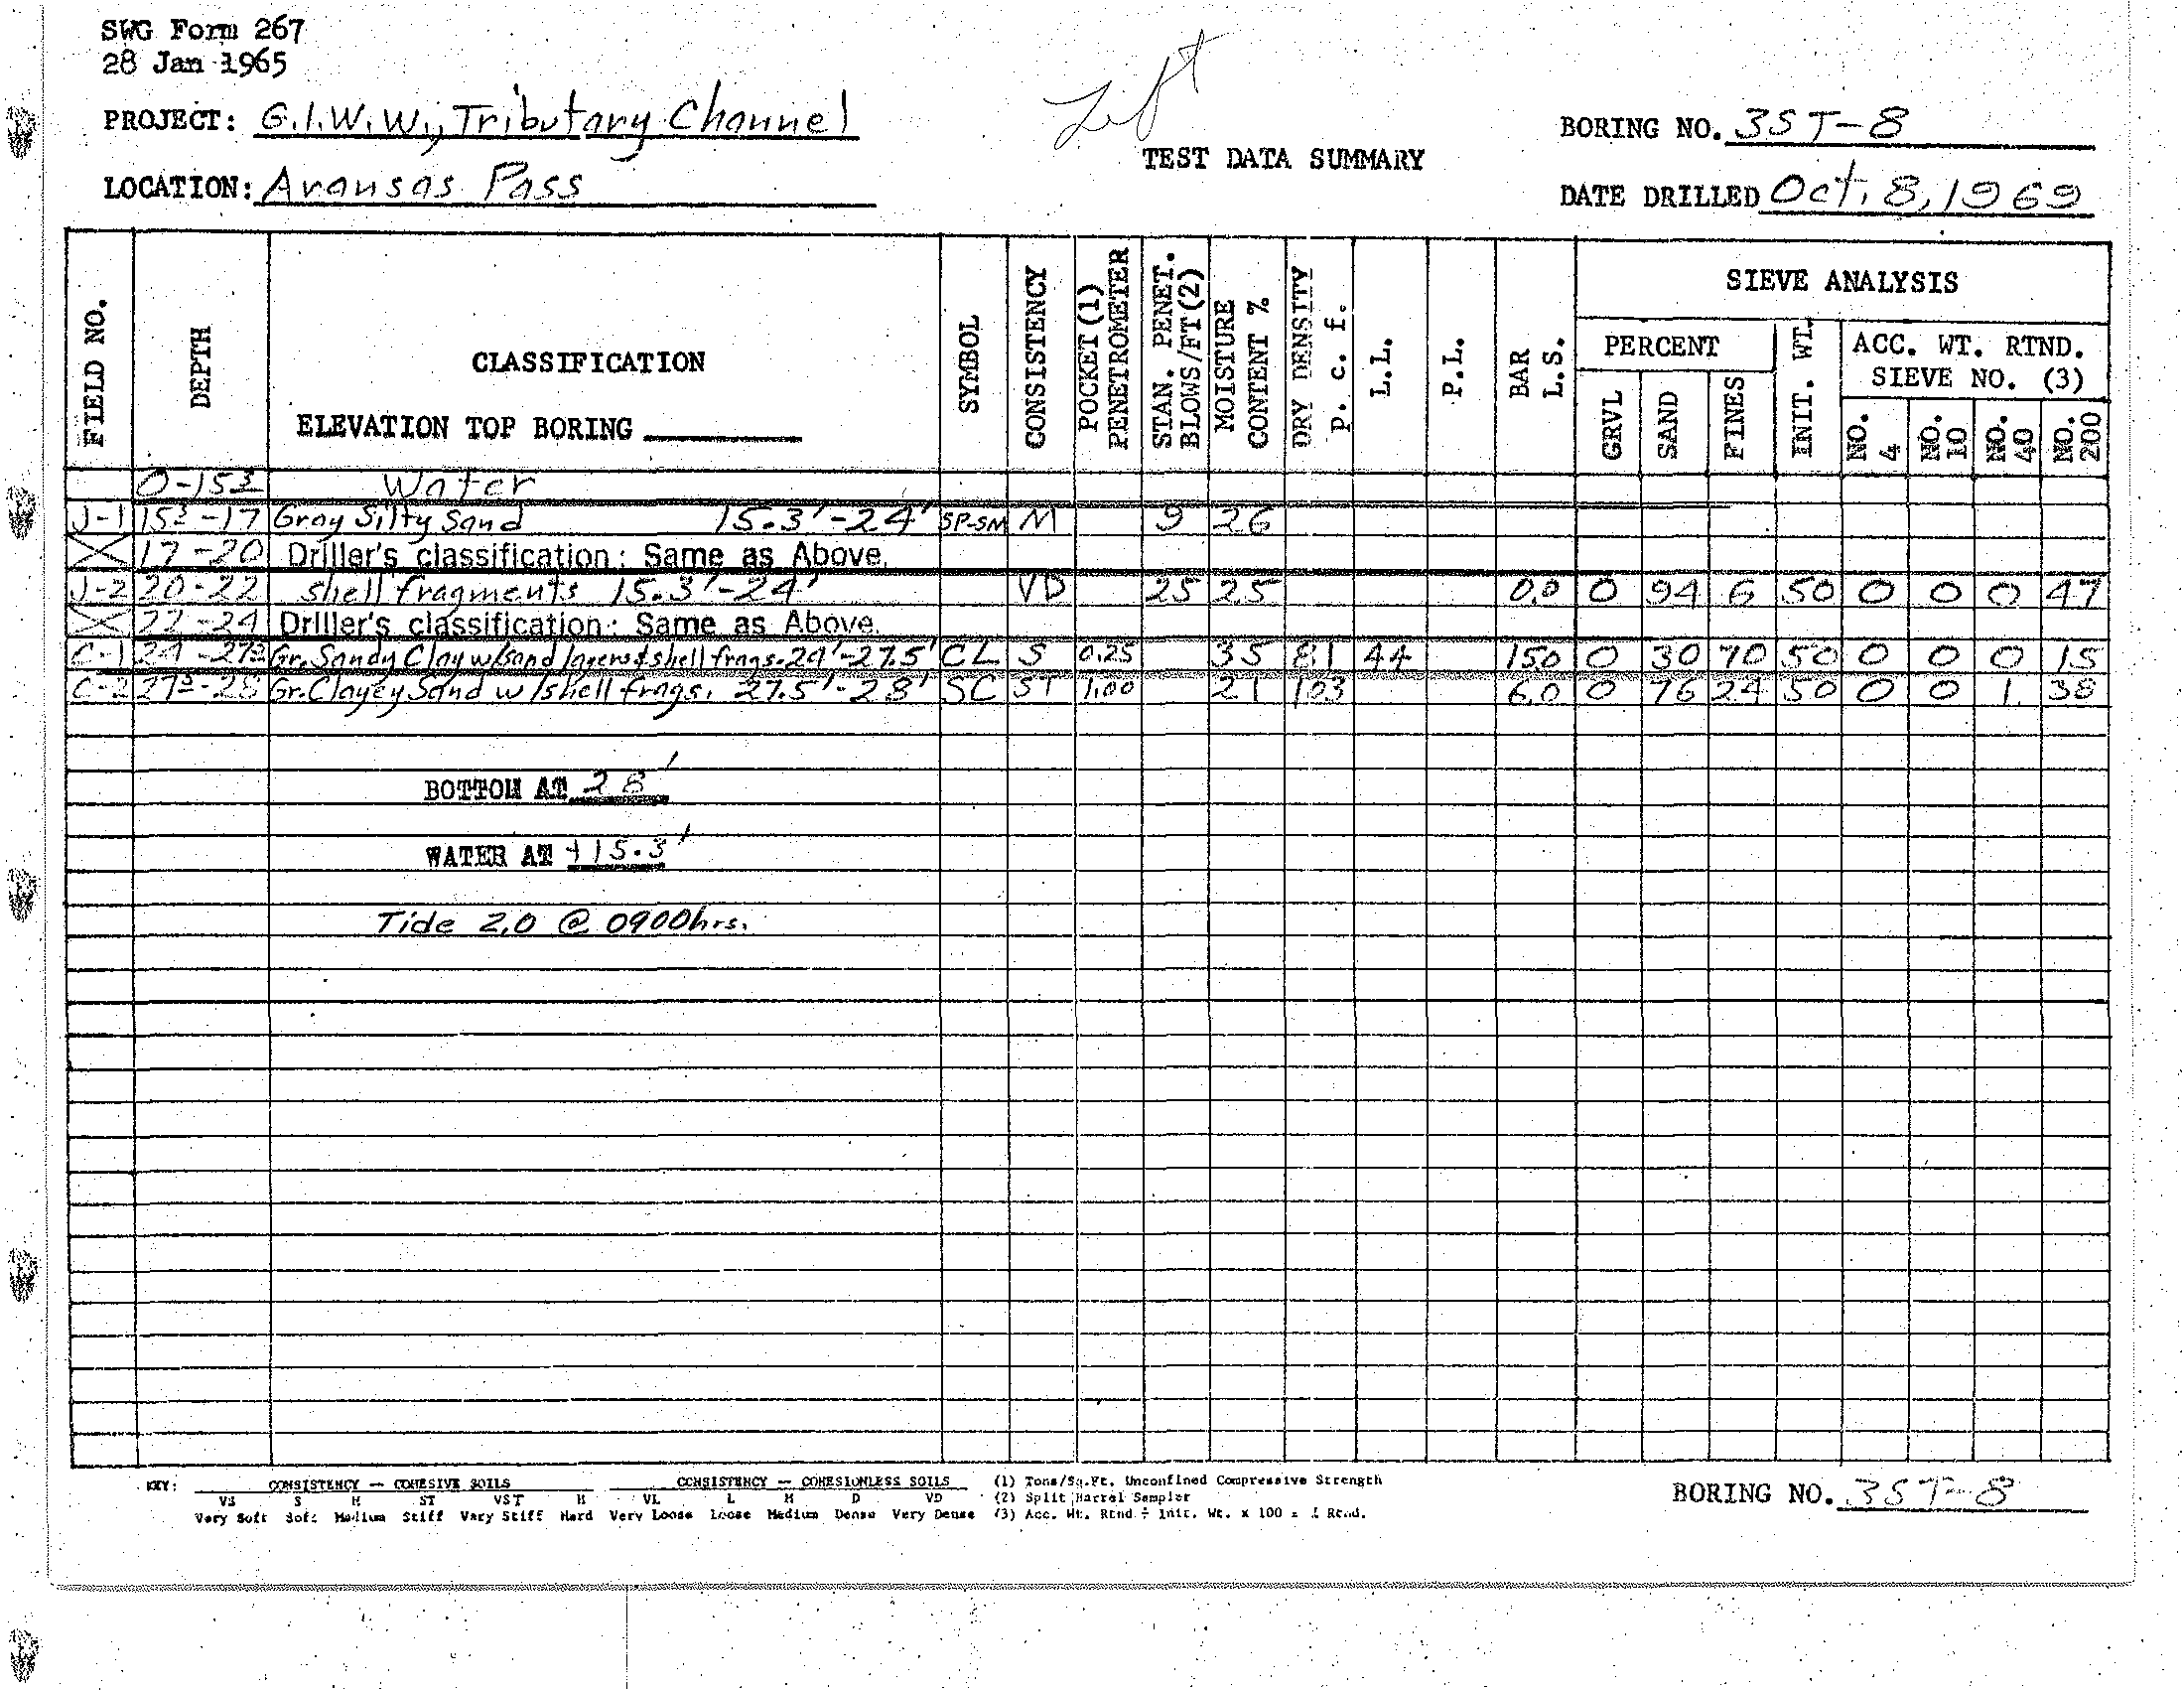 SWG Form 267
28 Jan 1965
Left
PROJECT: G.I.W.W., Tributary Channel
BORING NO. 3ST-8
TEST DATA SUMMARY
LOCATION: Aransas Pass
DATE DRILLED Oct. 8, 1969
FIELD NO. DEPTH CLASSIFICATION SYMBOL CONSISTENCY POCKET (1) PENETROMETER STAN. PENET. BLOWS/FT (2) MOISTURE CONTENT % DRY DENSITY p. c. f. L.L. P.L. BAR L.S. SIEVE ANALYSIS
PERCENT INIT. WT. ACC. WT. RTND. SIEVE NO. (3)
ELEVATION TOP BORING
GRVL SAND FINES NO. 4 NO. 10 NO. 40 NO. 200
0-15.3 Water
J-1 15.3-17 Gray Silty Sand 15.3'-24' SP-SM M 9 26
17-20 Driller's classification: Same as Above.
J-2 20-22 shell fragments 15.3'-24' VD 25 25 0.0 0 94 6 50 0 0 0 47
22-24 Driller's classification: Same as Above.
C-1 24-27.5 Gr. Sandy Clay w/sand layers & shell frags. 24'-27.5' CL S 0.25 35 81 44 15.0 0 30 70 50 0 0 0 15
C-2 27.5-28 Gr. Clayey Sand w/shell frags. 27.5'-28' SC ST 1.00 21 103 6.0 0 76 24 50 0 0 1 38
BOTTOM AT 28'
WATER AT +15.3'
Tide 2.0 @ 0900hrs.
KEY: CONSISTENCY — COHESIVE SOILS CONSISTENCY — COHESIONLESS SOILS (1) Tons/Sq.Ft. Unconfined Compressive Strength
VS S M ST VST H VL L M D VD (2) Split Barrel Sampler
Very Soft Soft Medium Stiff Very Stiff Hard Very Loose Loose Medium Dense Very Dense (3) Acc. Wt. Rtnd ÷ Init. Wt. x 100 = % Rtnd.
BORING NO. 3ST-8